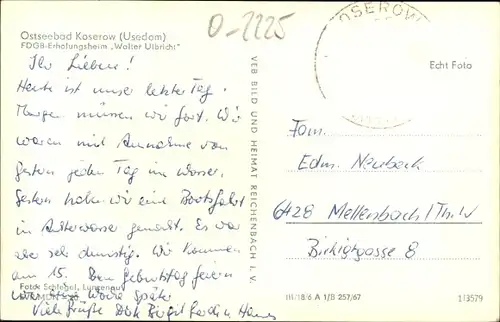 O-2225
Ostseebad Koserow (Usedom)
FDGB-Erholungsheim „Walter Ulbricht"
Ihr Lieben!
Heute ist unser letzter Tag.
Morgen müssen wir fort. Wir
waren mit Ausnahme von
gestern jeden Tag im Wasser.
Gestern haben wir eine Bootsfahrt
im gemacht. Es war
aber sehr dunstig. Wir kommen
am 15. Den Geburtstag feiern
wir etwas später
Viele Grüße Birgit
Foto: Schlegel, Lungenau
VEB BILD UND HEIMAT REICHENBACH I. V.
KOSEROW
Echt Foto
Fam.
Edm. Neubeck
6428 Mellenbach/Th.W
Birkiggasse 8
III/18/6 A 1/B 257/67
113579